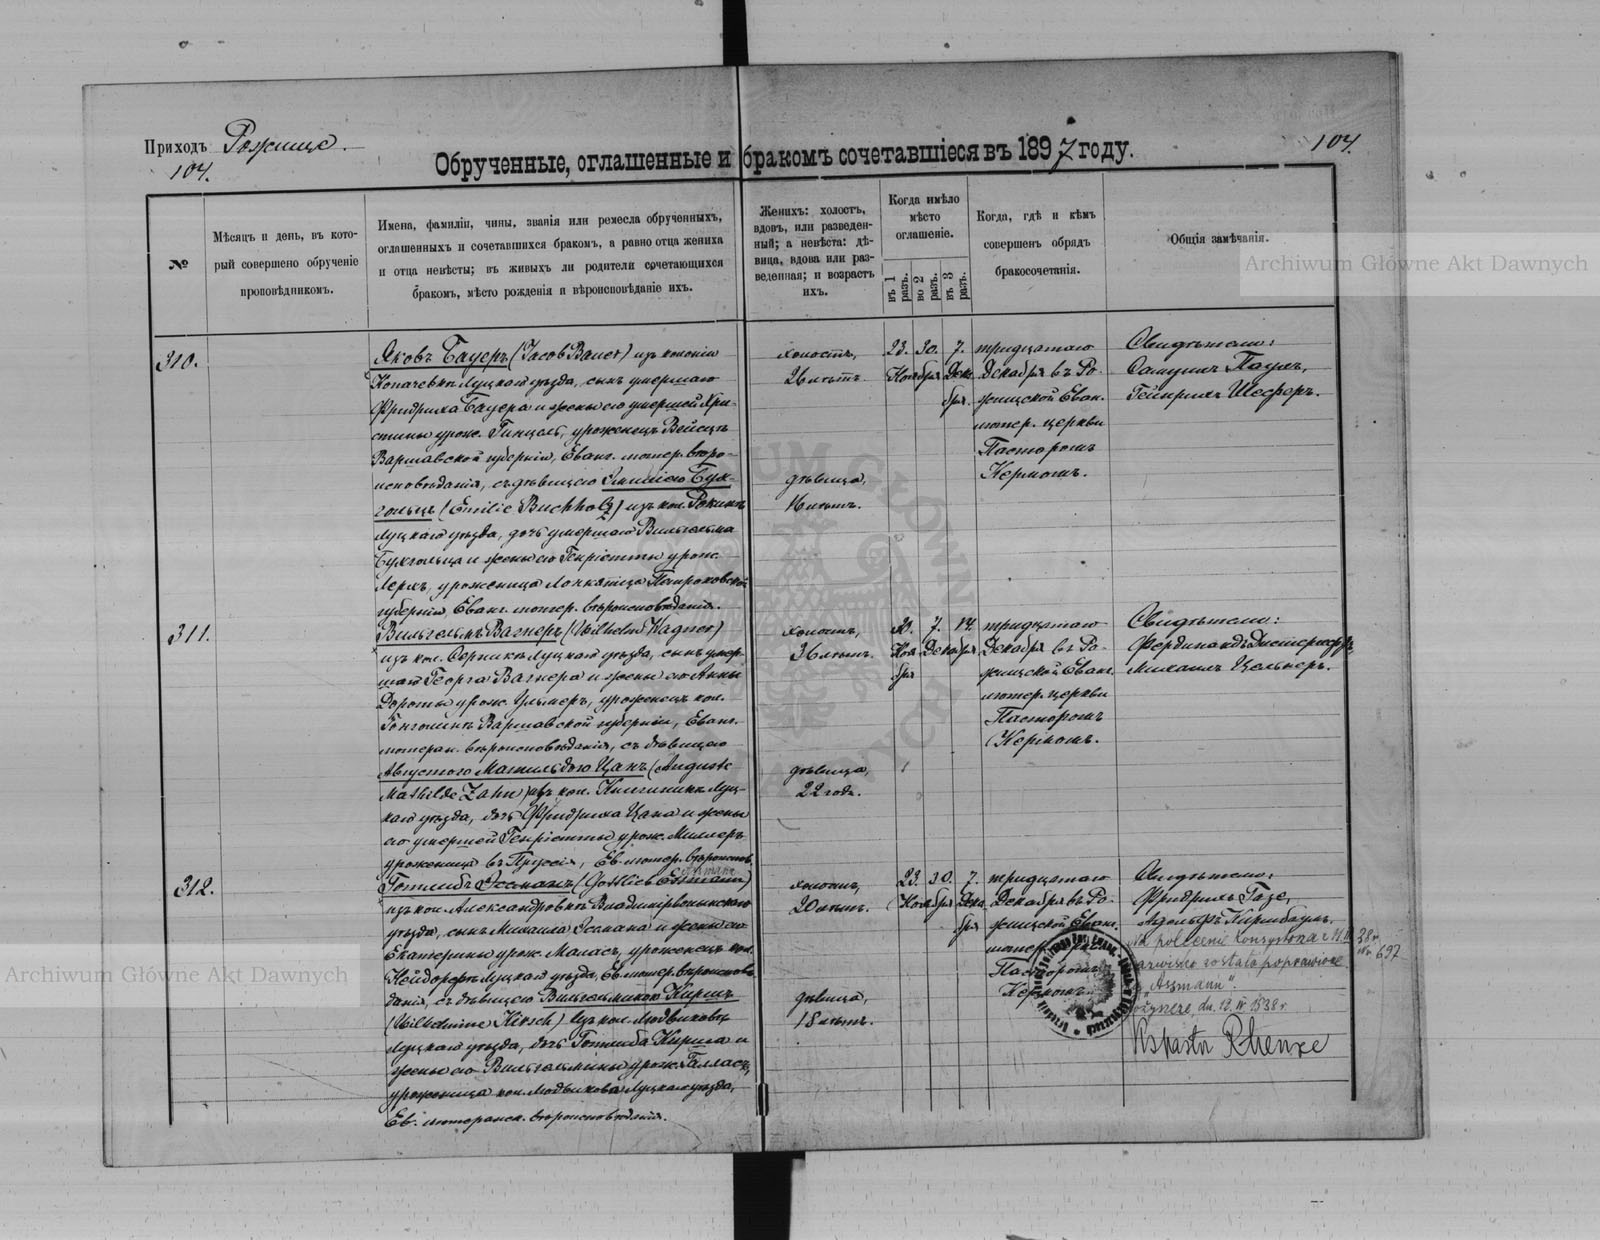 Приходъ Рожище.
104.
104.
Обрученные, оглашенные и бракомъ сочетавшіеся въ 1897 году.
№
Мѣсяцъ и день, въ кото-
рый совершено обрученіе
проповѣдникомъ.
Имена, фамиліи, чины, званія или ремесла обрученныхъ,
оглашенныхъ и сочетавшихся бракомъ, а равно отца жениха
и отца невѣсты; въ живыхъ ли родители сочетающихся
бракомъ, мѣсто рожденія и вѣроисповѣданіе ихъ.
Женихъ: холостъ,
вдовъ, или разведен-
ный; а невѣста: дѣ-
вица, вдова или раз-
веденная; и возрастъ
ихъ.
Когда имѣло
мѣсто
оглашеніе.
въ 1 разъ.
во 2 разъ.
въ 3 разъ.
Когда, гдѣ и кѣмъ
совершенъ обрядъ
бракосочетанія.
Общія замѣчанія.
Archiwum Główne Akt Dawnych
310.
Яковъ Бауеръ (Jacob Bauer) изъ колоніи
Копачевка Луцкаго уѣзда, сынъ умершаго
Фридриха Бауера и жены его умершей Хри-
стины урож. Гинцель, уроженецъ
Варшавской губерніи, Еванг. лютер. вѣро-
исповѣданія, съ дѣвицею Эмиліею Бух-
гольцъ (Emilie Buchholz) изъ кол.
Луцкаго уѣзда, дочь умершаго Вильгельма
Бухгольца и жены его Генріетты урож.
Лерхъ, уроженица Петроковской
губерніи, Еванг. лютер. вѣроисповѣданія.
холостъ,
26 лѣтъ.
дѣвица,
16 лѣтъ.
23. 30. 7.
Ноября Дека
бря.
тридцатаго
Декабря въ Ро-
жищской Еван.
лютер. церкви
Пасторомъ
Кермомъ.
Свидѣтели:
Самуилъ Паулъ,
Гейнрихъ Шеферъ.
311.
Вильгельмъ Вагнеръ (Wilhelm Wagner)
изъ кол. Луцкаго уѣзда, сынъ умер-
шаго Георга Вагнера и жены его Анны
Дороты урож. Ульмеръ, уроженецъ кол.
Варшавской губерніи, Еванг.
лютеран. вѣроисповѣданія, съ дѣвицею
Августою Матильдою Цанъ (Auguste
Mathilde Zahn) изъ кол. Княгининъ Луц-
каго уѣзда, дочь Фридриха Цана и жены
его умершей Генріетты урож. Миллеръ
уроженица въ Пруссіи, Ев. лютер. вѣроисповѣд.
холостъ,
36 лѣтъ.
дѣвица,
22 года.
30. 7. 14.
Ноя Декабря
бря
тридцатаго
Декабря въ Ро-
жищской Еванг.
лютер. церкви
Пасторомъ
Кермомъ.
Свидѣтели:
Фердинандъ
Михаилъ Цельнеръ.
312.
Assmann
Готлибъ Эссманъ (Gottlieb Essmann)
изъ кол. Александровка Владимірволынскаго
уѣзда, сынъ Михаила Эссмана и жены его
Екатерины урож. Маласъ, уроженецъ кол.
Нейдорфъ Луцкаго уѣзда, Ев. лютер. вѣроиспове-
данія, съ дѣвицею Вильгельминою Киршъ
(Wilhelmine Kirsch) изъ кол. Людвиковка
Луцкаго уѣзда, дочь Готлиба Кирша и
жены его Вильгельмины урож. Галласъ,
уроженица кол. Людвиковка Луцкаго уѣзда,
Ев. лютеранск. вѣроисповѣданія.
холостъ,
20 лѣтъ.
дѣвица,
18 лѣтъ.
23. 30. 7.
Ноября Дека
бря
тридцатаго
Декабря въ Ро-
жищской Еванг.
лютер. церкви
Пасторомъ
Кермомъ.
Свидѣтели:
Фридрихъ Газе,
Адольфъ Киршбаумъ.
Na polecenie Konsystorza z 38 r.
nazwisko zostało poprawione 697
"Assmann".
Rożyszcze, dn. 19. IV 1938 r.
Ks. pastor
Archiwum Główne Akt Dawnych